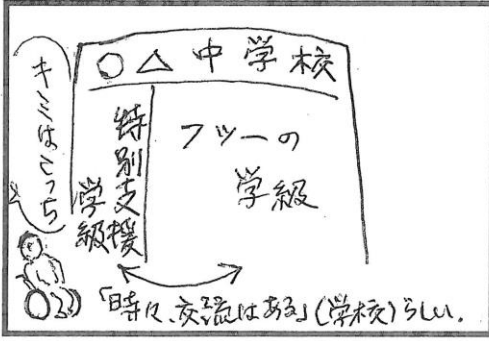 ○△中学校
キミはこっち
特別支援
学級
フツーの
学級
「時々、交流はある」(学校)らしい.